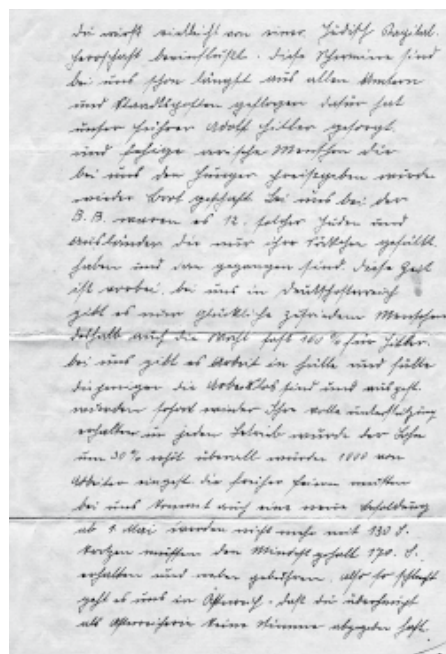 du wirst vielleicht von einer Jüdisch Kapital.
herrschaft beeinflußt. diese Schweine sind
bei uns schon längst aus allen Ämtern
und Staatsposten geflogen dafür hat
unser Führer Adolf Hitler gesorgt.
und fähige arische Menschen die
bei uns den Hunger preisgegeben wurde
wieder Brot geschaft. bei uns bei der
B. B. waren es 12. solcher Juden und
Ausländer die nur ihre gefüllt
haben und gegangen sind. diese Zeit
ist vorbei. bei uns in Deutschösterreich
gibt es nur glückliche zufriedene Menschen
deshalb auch die Wahl fast 100% für Hitler.
bei uns gibt es Arbeit in hülle und fülle
diejenigen die Arbeitslos sind und ausgest.
wurden sofort wieder Ihre volle unterstützung
erhalten in jeden Betrieb wurde der Lohn
um 30% erhöt überall wurden 1000 von
Arbeiter eingest. die früher feiern mußten
bei uns kommt auch eine neue besoldung
ab 1 Mai werden nicht mehr mit 130 S.
müssen den Mindestgehalt 170. S.
erhalten und neben gebühren. also so schlecht
geht es uns in Österreich. daß du überhaupt
als Österreicherin keine Stimme abgegeben hast.